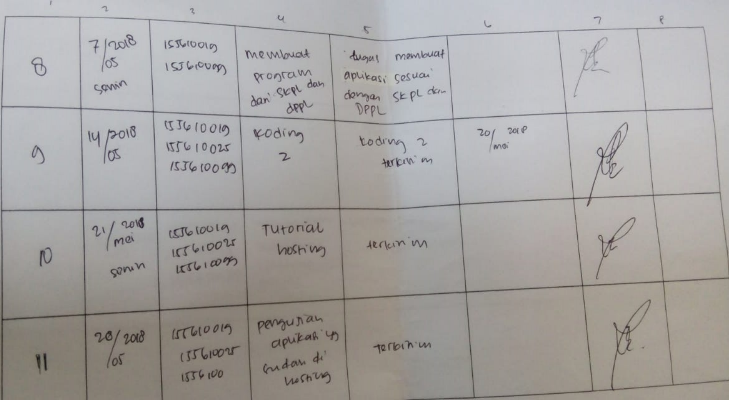 1 2 3 4 5 6 7 8
8
7/2018
05
senin
155610019
155610099
membuat
program
dari SKPL dan
DPPL
tugas membuat
aplikasi sesuai
dengan SKPL dan
DPPL
9
14/2018
05
155610019
155610025
155610099
Koding
2
Koding 2
terkirim
20/2018
mei
10
21/2018
mei
senin
155610019
155610025
155610099
Tutorial
hosting
terkirim
11
28/2018
05
155610019
155610025
1556100
pengujian
aplikasi yg
sudah di
hosting
terkirim